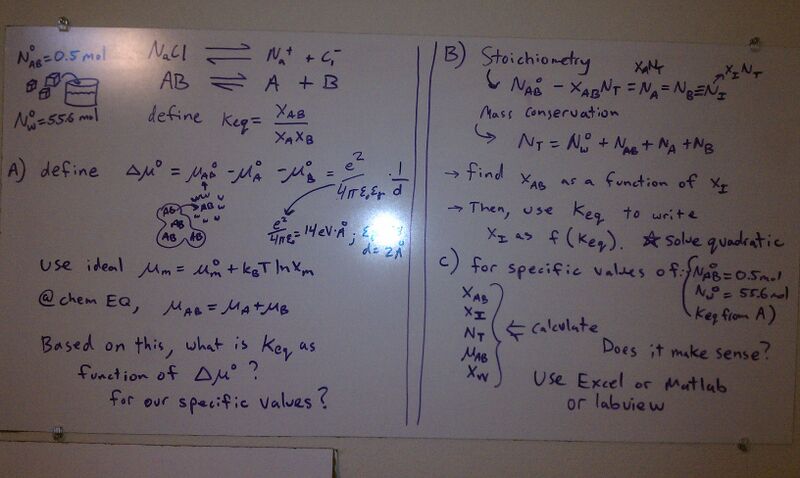 N°AB = 0.5 mol
N°w = 55.6 mol
NaCl ⇌ Na⁺ + Cl⁻
AB ⇌ A + B
define Keq = XAB / XAXB
A) define Δμ° = μ°AB - μ°A - μ°B = e² / 4πε₀εr · 1/d
AB
w w w
w AB w
w w w
AB
AB
AB AB
e² / 4πε₀ = 14 eV·A° ;
d = 2A°
Use ideal μm = μ°m + kBT ln Xm
@ chem EQ, μAB = μA + μB
Based on this, what is Keq as
function of Δμ° ?
for our specific values ?
B) Stoichiometry
XANT
XINT
N°AB - XABNT = NA = NB ≡ NI
Mass conservation
NT = N°w + NAB + NA + NB
→ find XAB as a function of XI
→ Then, use Keq to write
XI as f (Keq). ☆ Solve quadratic
C) for specific values of:
N°AB = 0.5 mol
N°w = 55.6 mol
Keq from A)
XAB
XI
NT
μAB
XW
⇐ calculate
Does it make sense?
Use Excel or Matlab
or labview